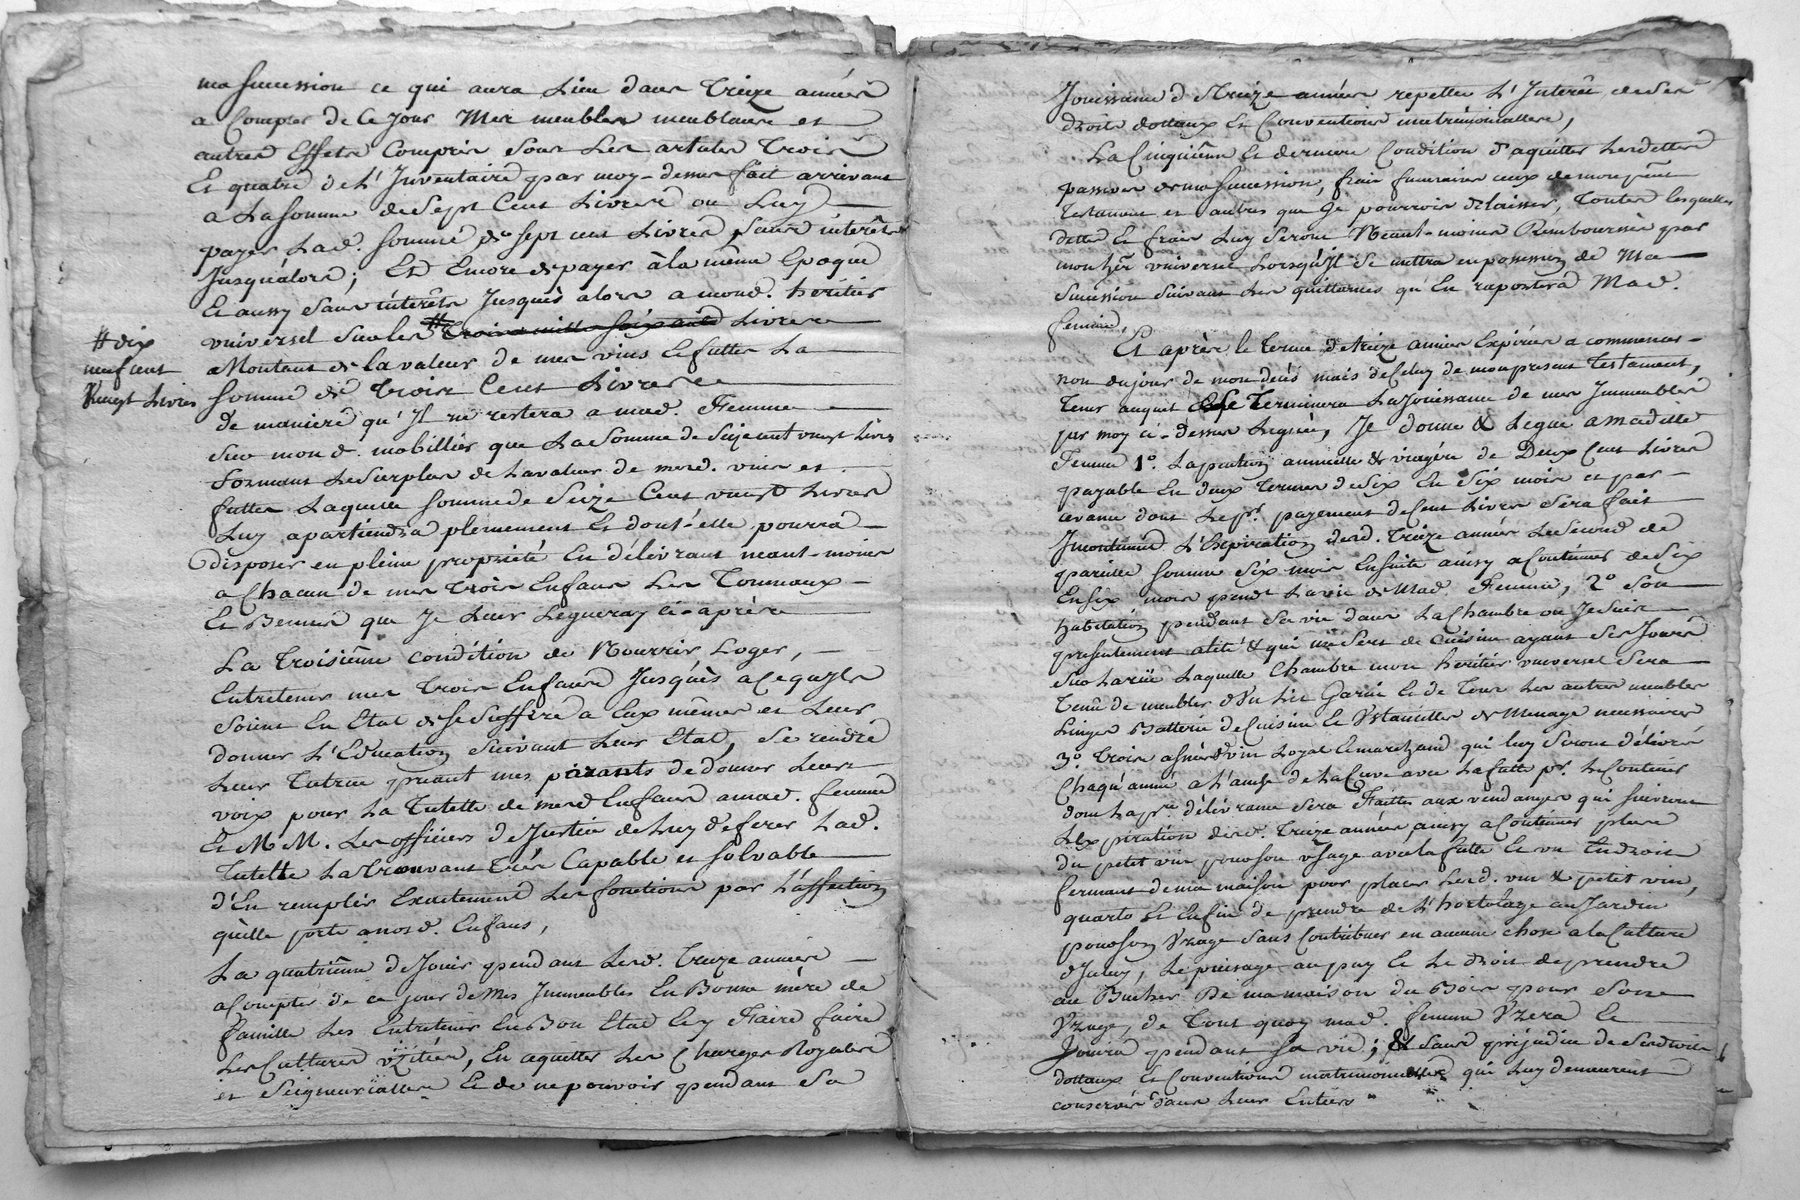 ma succession ce qui aura Lieu dans Treize années
a Compter de Ce Jour Mes meubles meublans et
autres Effets Compris Sous Les articles Trois
Et quatre de L'Inventaire par moy-dessus fait arrivant
a La Somme de Sept Cent Livres ou Luy
payer Lad. Somme de sept cent Livres sans intérêts
Jusqualors; Et Encore de payer à la même Epoque
Et aussy sans intérêts Jusques alors a mond. heritier
universel Sur les # trois mille soixante Livres
# dix
neuf cent
vingt Livres
Montant de la valeur de mes vins Et futtes La
Somme de Trois Cent Livres
de maniere qu'Il ne restera a mad. Femme
Sur mond. mobillier que La Somme de Seize cent vingt Livres
Formant Le Surplus de La valeur de mesd. vins et
futtes Laquelle Somme de Seize Cent vingt Livres
Luy apartiendra pleinement Et dont elle pourra
disposer en pleine propriété En délivrant neant-moins
a Chacun de mes Trois Enfans Les Tonneaux
Et Bennes que Je Leur Legueray ci-après
La Troisième condition de Nourrir Loger,
Entretenir mes Trois Enfans Jusqués a ce qu'ils
Soient En Etat de se Suffire a Eux mêmes et Leur
donner L'Education Suivant Leur Etat, Se rendre
Leur Tutrice priant mes parants de donner Leurs
voix pour La Tutelle de mesd Enfans a mad. femme
Et M M. Les officiers de Justice de Luy deferer Lad.
Tutelle La Trouvant Très Capable et solvable
d'En remplir Exactement Les fonctions par L'affection
qu'elle porte a nosd. Enfans,
La quatrième de Jouir pendant Lesd. Treize années
a Compter de ce jour de Mes Immeubles En Bonne mère de
famille Les Entretenir En Bon Etat Et y Faire faire
Les Cultures uzitées, En aquitter Les Charges Royales
et Seigneurialles Et de ne pouvoir pendant Sa
Jouissance de Treize années repetter L'Interêt de Ses
droits dottaux Et Conventions matrimonialles,
La Cinquième Et derniere Condition d'aquitter Les dettes
passives de ma succession, frais funeraires ceux de mon pnt
Testament et autres que Je pourrois délaisser, Toutes lesquelles
dettes Et frais Luy Seront Néant-moins Remboursés par
mon hér universel Lorsqu'Il Se mettra en possession de Ma
Succession Suivant Les quittances qu'En raportera Mad.
femme,
Et après le terme de Treize années Expirées a commencer
non du jour de mon décès mais de Celuy de mon present Testament,
Tems auquel Se Terminera La Jouissance de mes Immeubles
par moy ci-dessus Leguée, Je donne & Legue a madite
Femme 1°. La pention annuelle & viagère de Deux Cent Livres
payable En deux Termes de Six En Six mois et par
avance dont Le pr. payement de Cent Livres Sera fait
Incontinent L'Expiration desd. Treize années Le Second de
pareille somme Six mois Ensuite ainsy a Continuer de Six
En Six mois pendt La vie de Mad Femme, 2° Son
habitation pendant Sa vie dans La Chambre ou Je Suis
presentement alité & qui me Sert de cuisine ayant Ses Jours
Sur La rüe Laquelle Chambre mon heritier universel Sera
Tenû de meubler d'Un Lit Garni Et de Tous Les autres meubles
Linges Batterie de Cuisine Et Ustancilles de Menage necessaires
3°. Trois asnées de vin Loyal Et marchand qui luy Seront délivrés
Chaqu'année a L'anche de La Cuve avec La futte pr. Le Contenir
dont La pre. délivrance Sera Faitte aux vendanges qui Suivront
L'Expiration desd. Treize années ainsy a Continuer plus
du petit vin pour son usage avec la futte Et un Endroit
fermant de ma maison pour placer Led. vin & petit vin,
quarto Et Enfin de prendre de L'hortolage au Jardin
pour son Uzage Sans Contribuer en aucune chose a la Culture
d'Iceluy, Le puisage au puy Et Le droit de prendre
au Bucher De ma maison du Bois pour Son
Uzage, de Tout quoy mad. femme Uzera Et
Jouira pendant sa vie; & Sans préjudice de Ses droits
dottaux Et Conventions matrimonialles qui Luy demeurent
conservés dans Leur Entiers